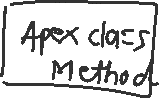 Apex class
Method